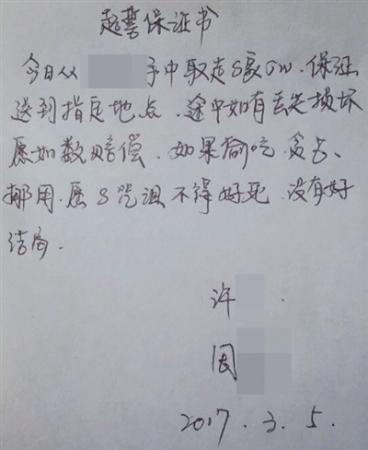 起誓保证书
今日从 手中取走S家 保证
送到指定地点、途中如有丢失损坏
愿如数赔偿、如果偷吃、贪占、
挪用、愿S咒诅不得好死、没有好
结局.
许
因
2017.3.5.